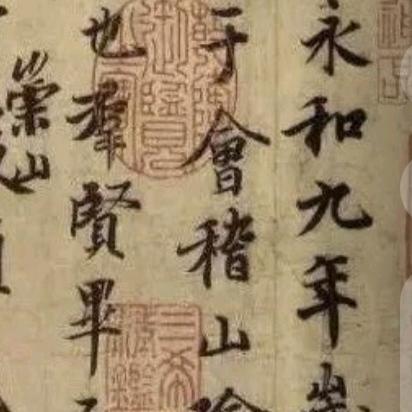 永和九年歲
于會稽山陰
也羣賢畢
崇山